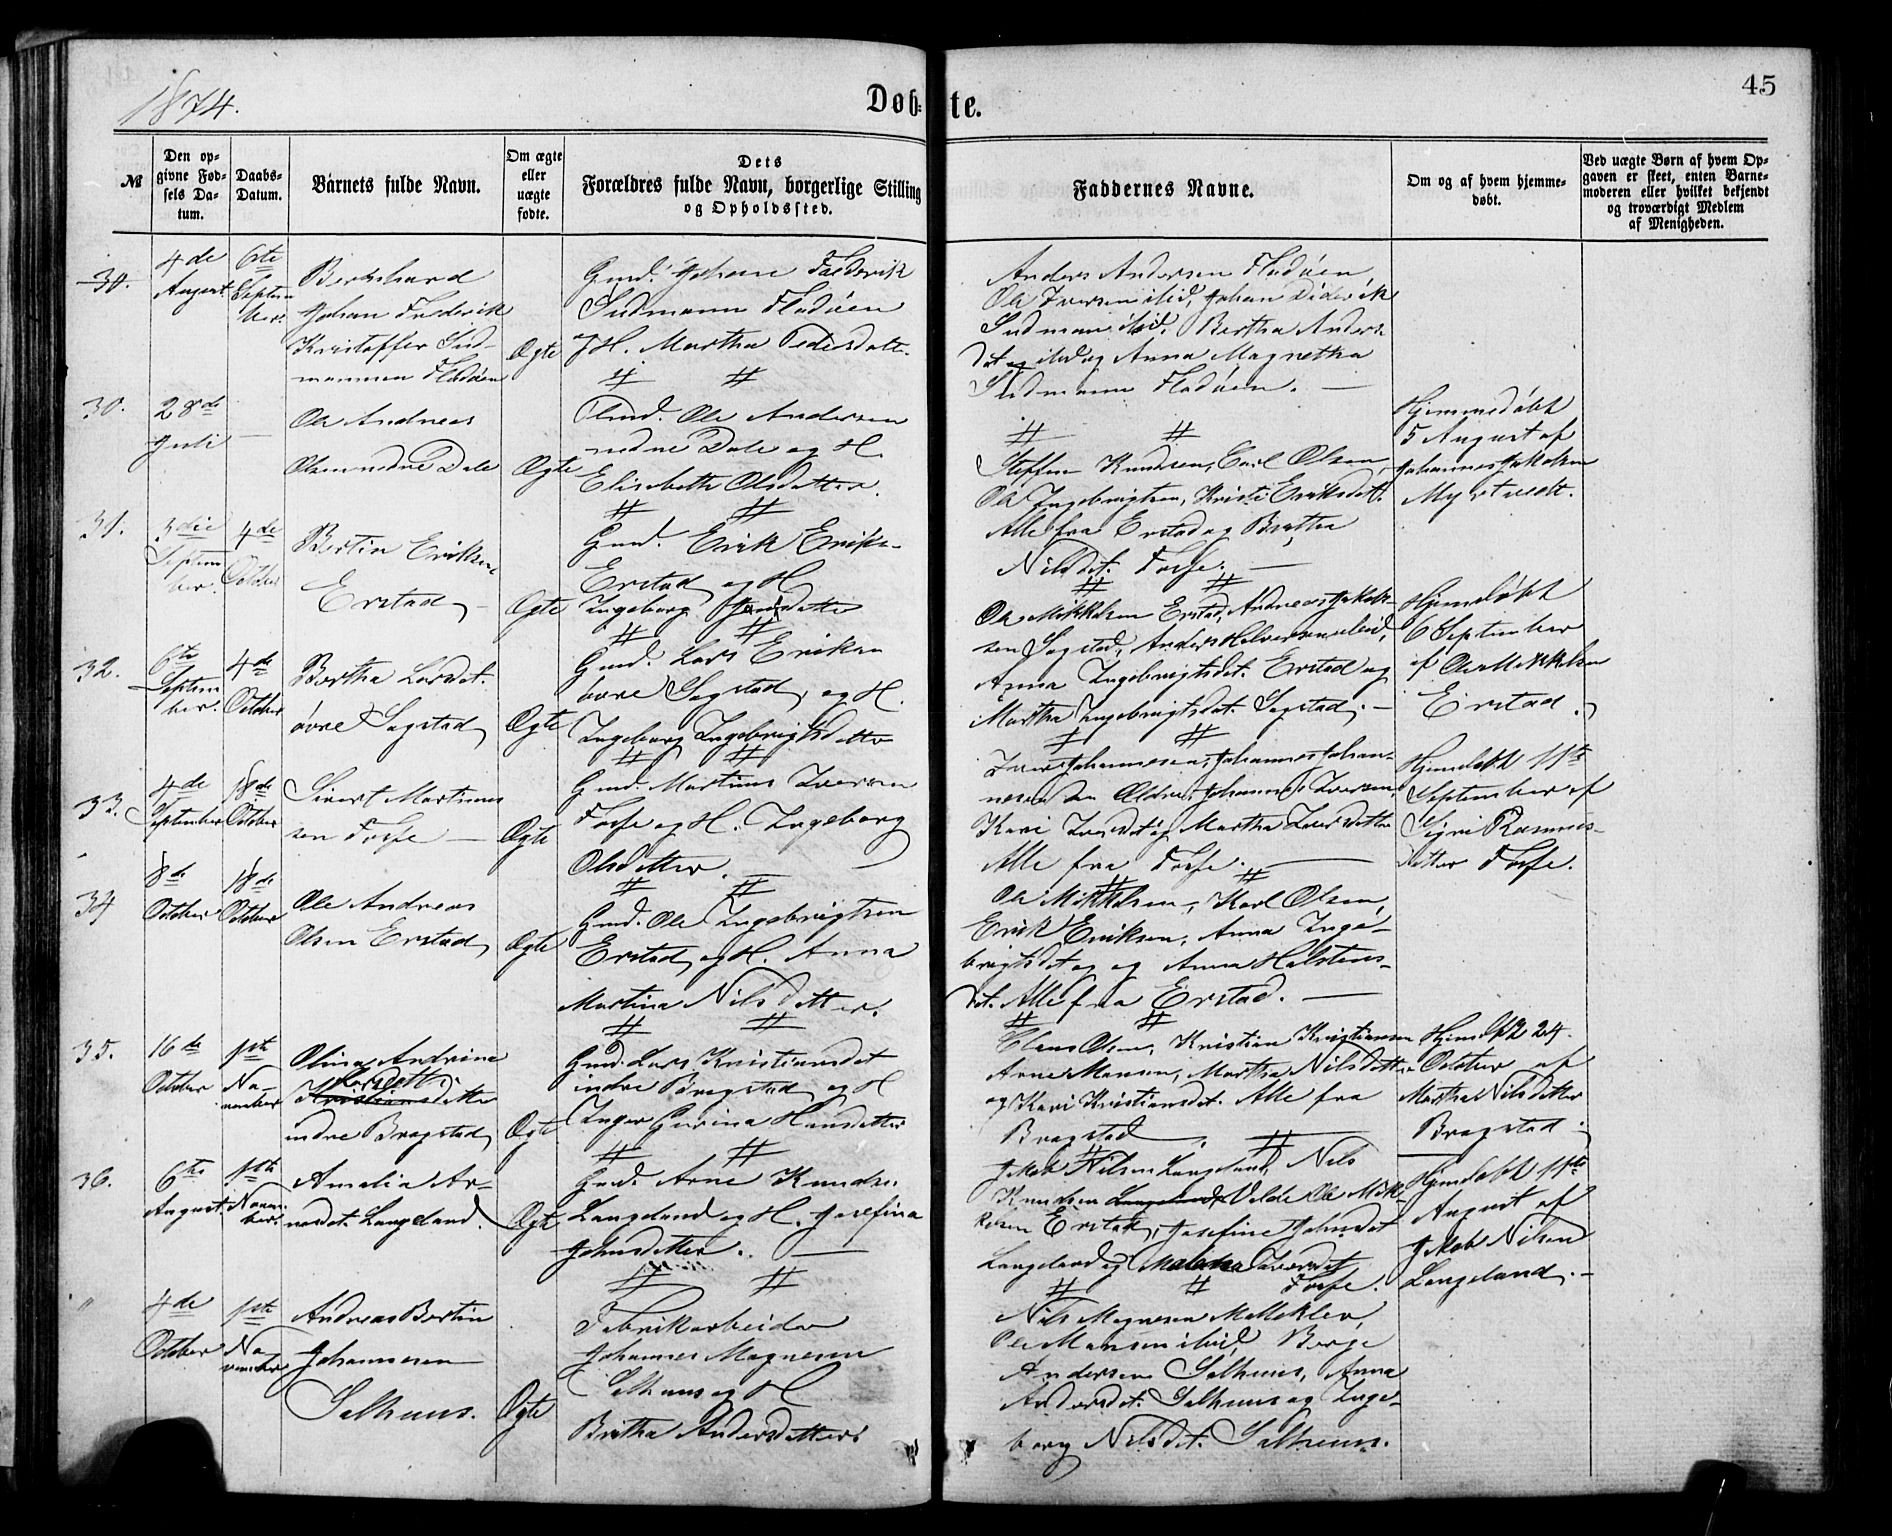 1874.
Døb-
te.
45
№
Den op-
givne Fød-
sels Da-
tum.
Daabs-
Datum.
Barnets fulde Navn.
Om ægte
eller
uægte
fødte.
Dets
Forældres fulde Navn, borgerlige Stilling
og Opholdssted.
Faddernes Navne.
Om og af hvem hjemme-
døbt.
Ved uægte Børn af hvem Op-
gaven er skeet, enten Barne-
moderen eller hvilket bekjendt
og troværdigt Medlem
af Menigheden.
30.
4de
August
6te
Septem
ber.
Bernhard
Johan Frederik
Kristoffer Sud-
mannsen Fladøen
Ægte
Gmd. Johan Frederik
Sudmann Fladøen
og H. Martha Pedersdatt.
Anders Andersen Fladøen,
Ole Iversen ibid, Johan Diderik
Sudmann ibid. Bertha Anders-
dat ibid og Anna Magnetha
Sudmann Fladøen. —
30.
28de
Juli
—
Ole Andreas
Olsen nedre Dale
Ægte
Gmd. Ole Andersen
nedre Dale og H.
Elisabeth Olsdatter.
Steffen Knudsen, Carl Olsen,
Ole Ingebrigtsen, Kristi Eriksdat.
Alle fra Erstad og Brita
Nilsdt. Fosse. —
Hjemmedøbt
5 August af
Johannes Jakobsen
Myrtvedt.
31.
3die
Septem
ber.
4de
October
Bertin Eriksen
Erstad —
Ægte
Gmd. Erik Eriks-
Erstad og H
Ingeborg
Ole Mikkelsen Erstad, Andreas Jakob-
sen Sagstad, Anders Halvorsen ibid,
Anna Ingebrigtsdat. Erstad og
Martha Ingebrigtsdat. Sagstad. —
Hjemdøbt
6 September
af Ole Mikkelsen
Erstad.
32.
6te
Septem
ber.
4de
October
Bertha Larsdat.
øvre Sagstad
Ægte
Gmd. Lars Eriksen
øvre Sagstad, og H.
Ingeborg Ingebrigtsdatter
Iver Johannesen, Johannes Johan-
nesen den Ældre, Johannes Iversen,
Kari Iversdt og Martha Iversdatter
Alle fra Fosse. —
Hjemdøbt 11te
September af
Sigri Rasmus-
datter Fosse.
33.
4de
September
18de
October
Sivert Martinus
sen Fosse —
Ægte
Gmd. Martinus Iversen
Fosse og H. Ingeborg
Olsdatter. —
34
8de
October
18de
October
Ole Andreas
Olsen Erstad
Ægte
Gmd. Ole Ingebrigtsen
Erstad og H. Anna
Martina Nilsdatter.
Ole Mikkelsen, Karl Olsen,
Erik Eriksen, Anna Inge-
brigtsdat og Anna Halstens-
dat. Alle fra Erstad. —
35.
16de
October
1ste
No-
vember
Olina Andrine
Larsdatt.
Kristiansdatter
indre Bragstad
Ægte
Gmd. Lars Kristiansdat
indre Bragstad og H
Inger Gurina Hansdatter
Claus Olsen, Kristian Kristiansen
Arne Monsen, Martha Nilsdatter
og Kari Kristiansdat. Alle fra
Bragstad.
Hjemdøbt 24.
October af
Martha Nilsdatter
Bragstad.
36.
6te
August
1ste
Novem
ber.
Amalia Ar-
nesdat Langeland.
Ægte
Gmd. Arne Knudsen
Langeland og H. Josefina
Johnsdatter. —
Jakob Nilsen Langeland, Nils
Knudsen Langeland Velde Ole Mik-
kelsen Erstad, Josefine Johnsdat
Langeland og Malena Iversdat
Fosse.
Hjemdøbt 11te
August af
Jakob Nilsen
Langeland. —
"
4de
October
1ste
No
vember
Andreas Bertin
Johannesen
Salhuus.
Ægte
Fabrikarbeider
Johannes Magnesen
Salhuus og H
Britha Andersdatter
Nils Magnesen Mølleklev,
Ole Monsen ibid, Børge
Andersen Salhuus, Anna
Andersdat. Salhuus og Inge-
borg Nilsdt. Salhuus.